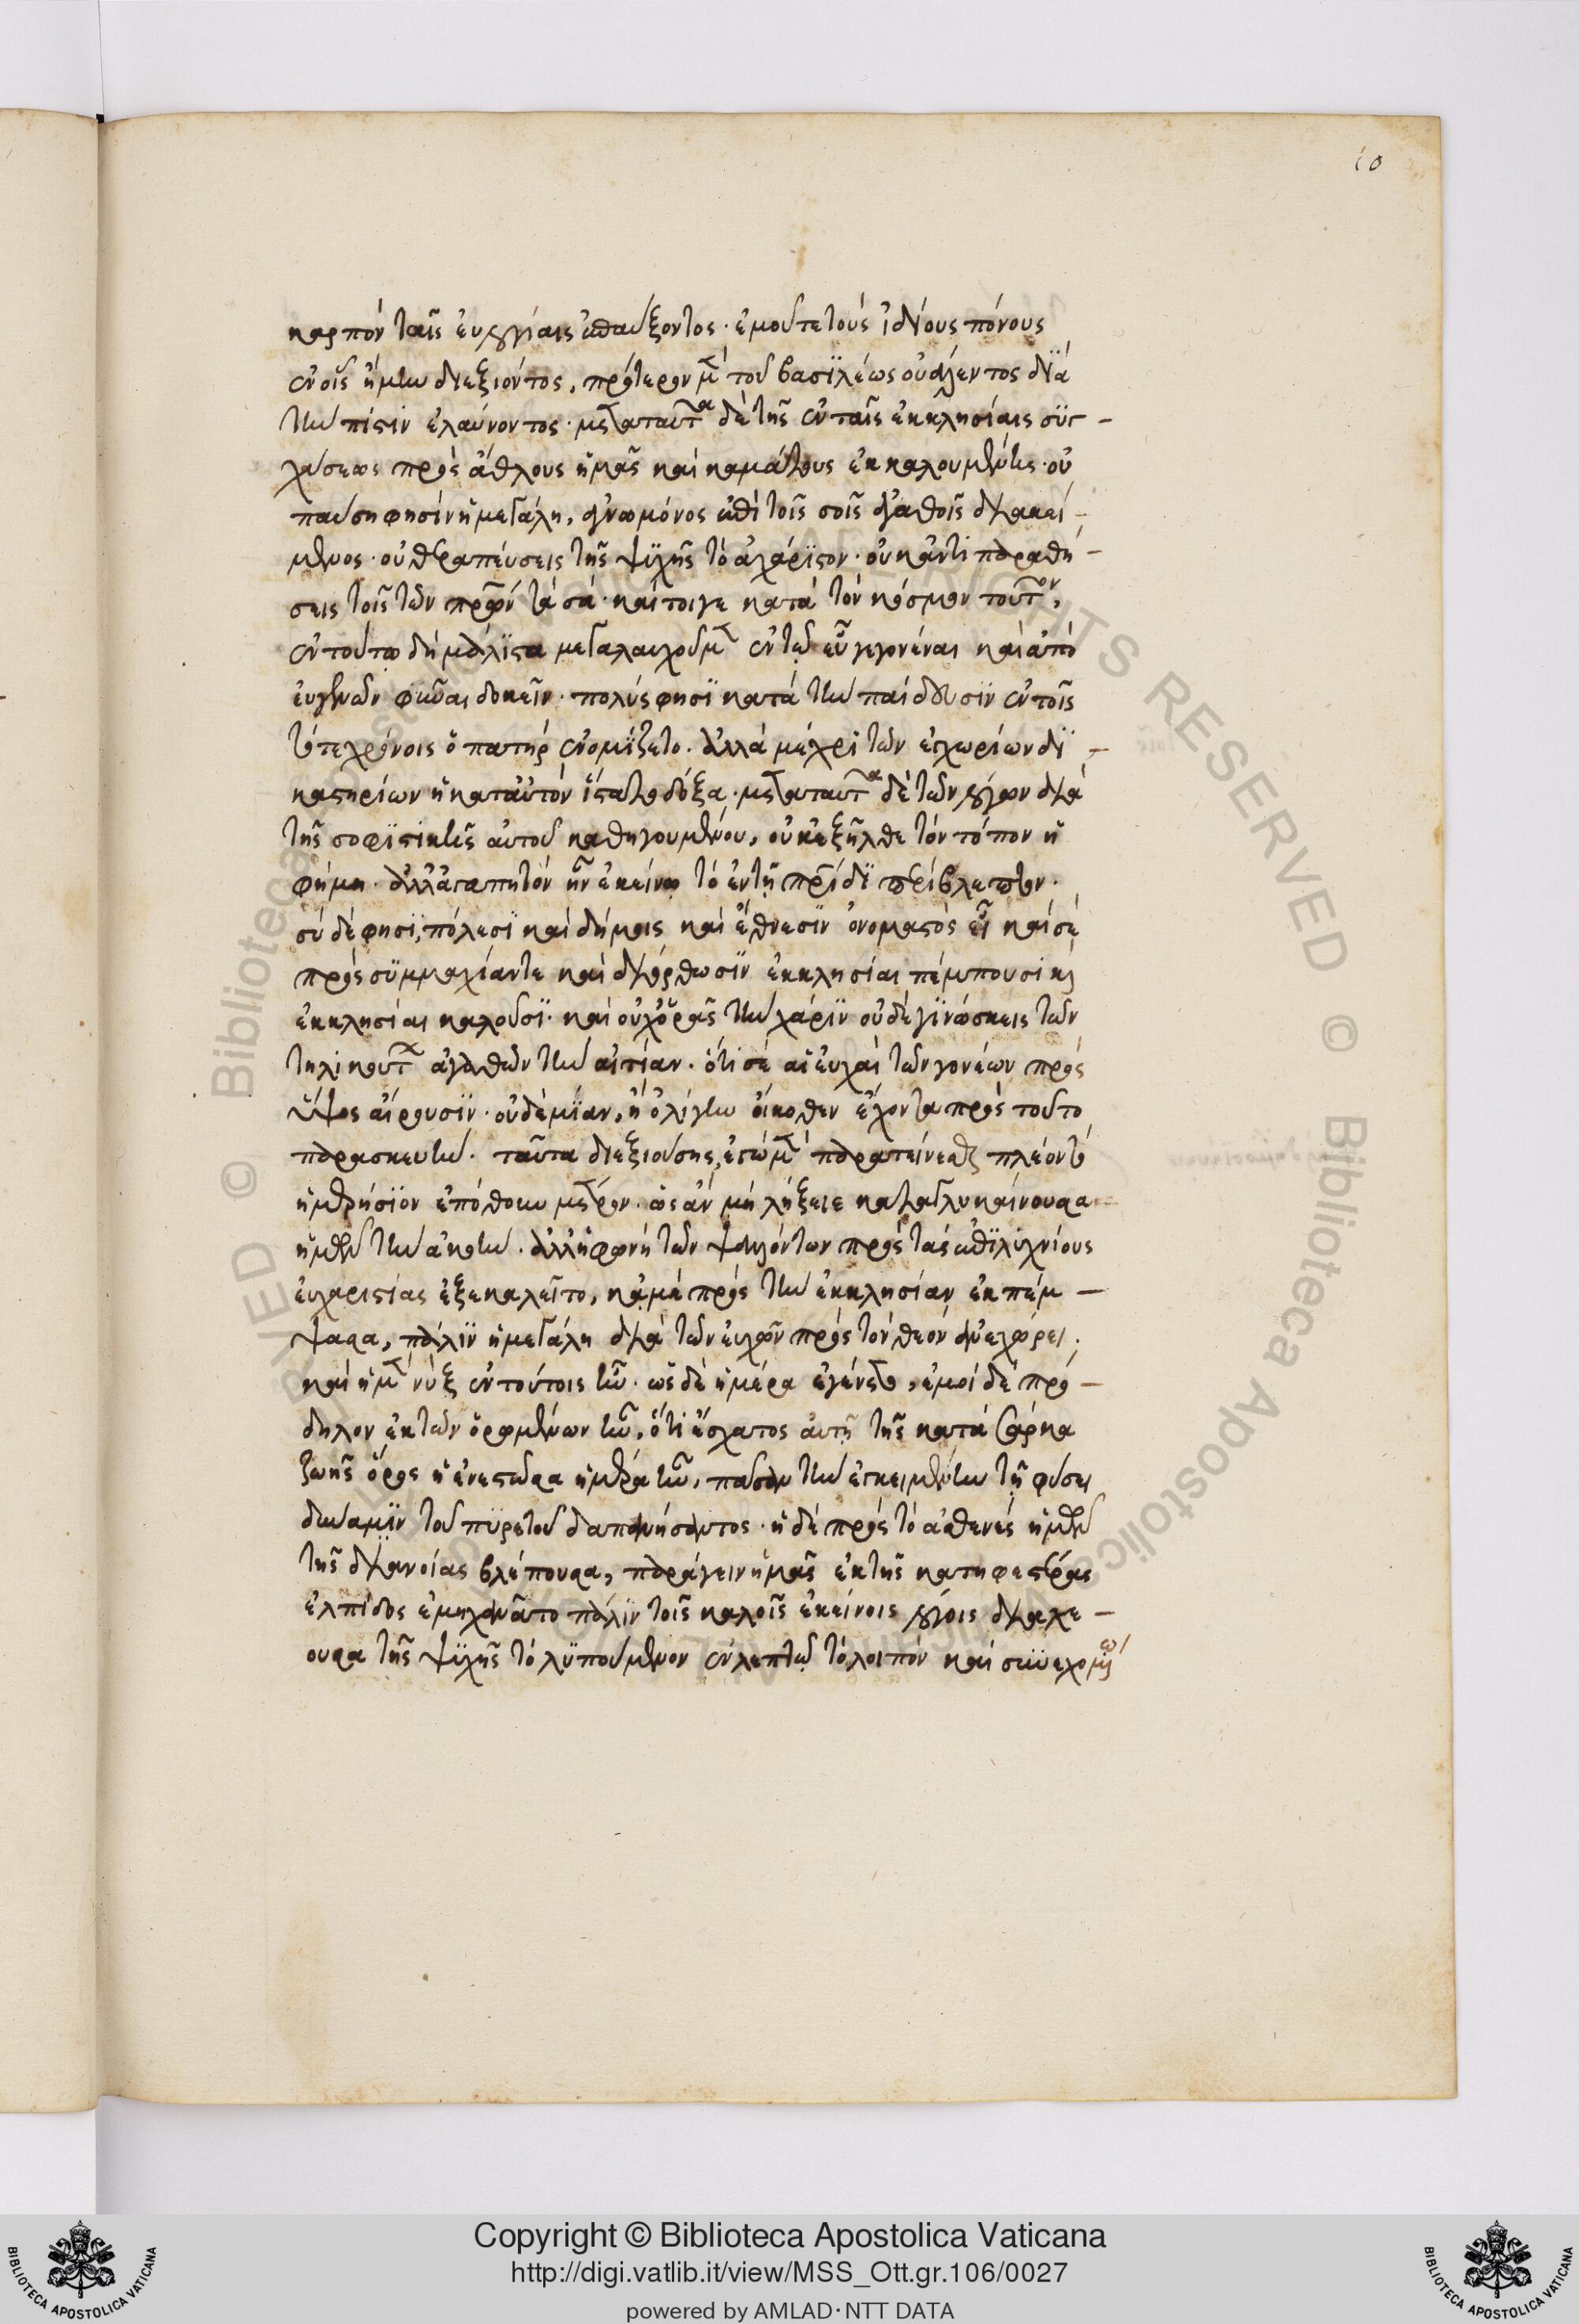 10
καρπὸν ταῖς εὐλογίαις ἐπαύξοντος· ἐμοῦ τε τοὺς ἰδίους πόνους
ἐν οἷς ἤμην διεξιόντος, πρότερον μὲν τοῦ βασιλέως οὐάλεντος διὰ
τὴν πίστιν ἐλαύνοντος· μετὰ ταῦτα δὲ τῆς ἐν ταῖς ἐκκλησίαις συγ-
χύσεως πρὸς ἄθλους ἡμᾶς καὶ καμάτους ἐκκαλουμένης· οὐ
παύσῃ φησὶν ἡ μεγάλη, ἀγνωμόνως ἐπὶ τοῖς σοῖς ἀγαθοῖς διακεί-
μενος· οὐ θεραπεύσεις τῆς ψυχῆς τὸ ἀχάριστον· οὐκ ἀντιπαραθή-
σεις τοῖς τῶν πατέρων τὰ σά· καίτοιγε κατὰ τὸν κόσμον τοῦτον,
ἐν τούτω δὴ μάλιστα μεγαλαυχοῦμεν ἐν τῷ εὖ γεγονέναι καὶ ἀπὸ
εὐγενῶν φῦναι δοκεῖν· πολύς φησι κατὰ τὴν παίδευσιν ἐν τοῖς
τότε χρόνοις ὁ πατὴρ ἐνομίζετο· ἀλλὰ μέχρι τῶν ἐγχωρίων δι-
καστηρίων ἡ κατ' αὐτὸν ἵστατο δόξα· μετὰ ταῦτα δὲ τῶν λόγων διὰ
τῆς σοφιστικῆς αὐτοῦ καθηγουμένου, οὐκ ἐξῆλθε τὸν πόντον ἡ
φήμη· ἀλλ' ἀγαπητὸν ἦν ἐκείνῳ τὸ ἐν τῇ πατρίδι περίβλεπτον·
σὺ δέ φησι, πόλεσι καὶ δήμοις καὶ ἔθνεσιν ὀνομαστὸς εἶ καὶ σὲ
πρὸς συμμαχίαν τε καὶ διόρθωσιν ἐκκλησίαι πέμπουσι καὶ
ἐκκλησίαι καλοῦσι· καὶ οὐχ ὁρᾷς τὴν χάριν οὐδὲ γινώσκεις τῶν
τηλικούτων ἀγαθῶν τὴν αἰτίαν· ὅτι σὲ αἱ εὐχαὶ τῶν γονέων πρὸς
ὕψος αἴρουσιν· οὐδεμίαν, ἢ ὀλίγην οἴκοθεν ἔχοντα πρὸς τοῦτο
παρασκευήν· ταῦτα διεξιούσης, ἐγὼ μὲν παρατείνεσθαι πλέον τὸ
ἡμερήσιον ἐπόθουν μέτρον· ὡς ἂν μὴ λήξειε καταγλυκαίνουσα
ἡμῶν τὴν ἀκοήν· ἀλλ' ἡ φωνὴ τῶν ψαλλόντων πρὸς τὰς ἐπιλυχνίους
εὐχαριστίας ἐξεκαλεῖτο, κἀμὲ πρὸς τὴν ἐκκλησίαν ἐκπέμ-
ψασα, πάλιν ἡ μεγάλη διὰ τῶν εὐχῶν πρὸς τὸν θεὸν ἀνεχώρει·
καὶ ἡ μὲν νὺξ ἐν τούτοις ἦν· ὡς δὲ ἡμέρα ἐγένετο, ἐμοὶ δὲ πρό-
δηλον ἐκ τῶν ὁρωμένων ἦν, ὅτι ἔσχατος αὐτῇ τῆς κατὰ σάρκα
ζωῆς ὅρος ἡ ἐνεστῶσα ἡμέρα ἦν, πᾶσαν τὴν ἐγκειμένην τῇ φύσει
δύναμιν τοῦ πυρετοῦ δαπανήσαντος· ἡ δὲ πρὸς τὸ ἀσθενὲς ἡμῶν
τῆς διανοίας βλέπουσα, παράγειν ἡμᾶς ἐκ τῆς κατηφεστέρας
ἐλπίδος ἐμηχανᾶτο πάλιν τοῖς καλοῖς ἐκείνοις λόγοις διαχέ-
ουσα τῆς ψυχῆς τὸ λυπούμενον ἐν λεπτῷ τὸ λοιπὸν καὶ συνεχομένῳ
Copyright © Biblioteca Apostolica Vaticana
http://digi.vatlib.it/view/MSS_Ott.gr.106/0027
powered by AMLAD·NTT DATA